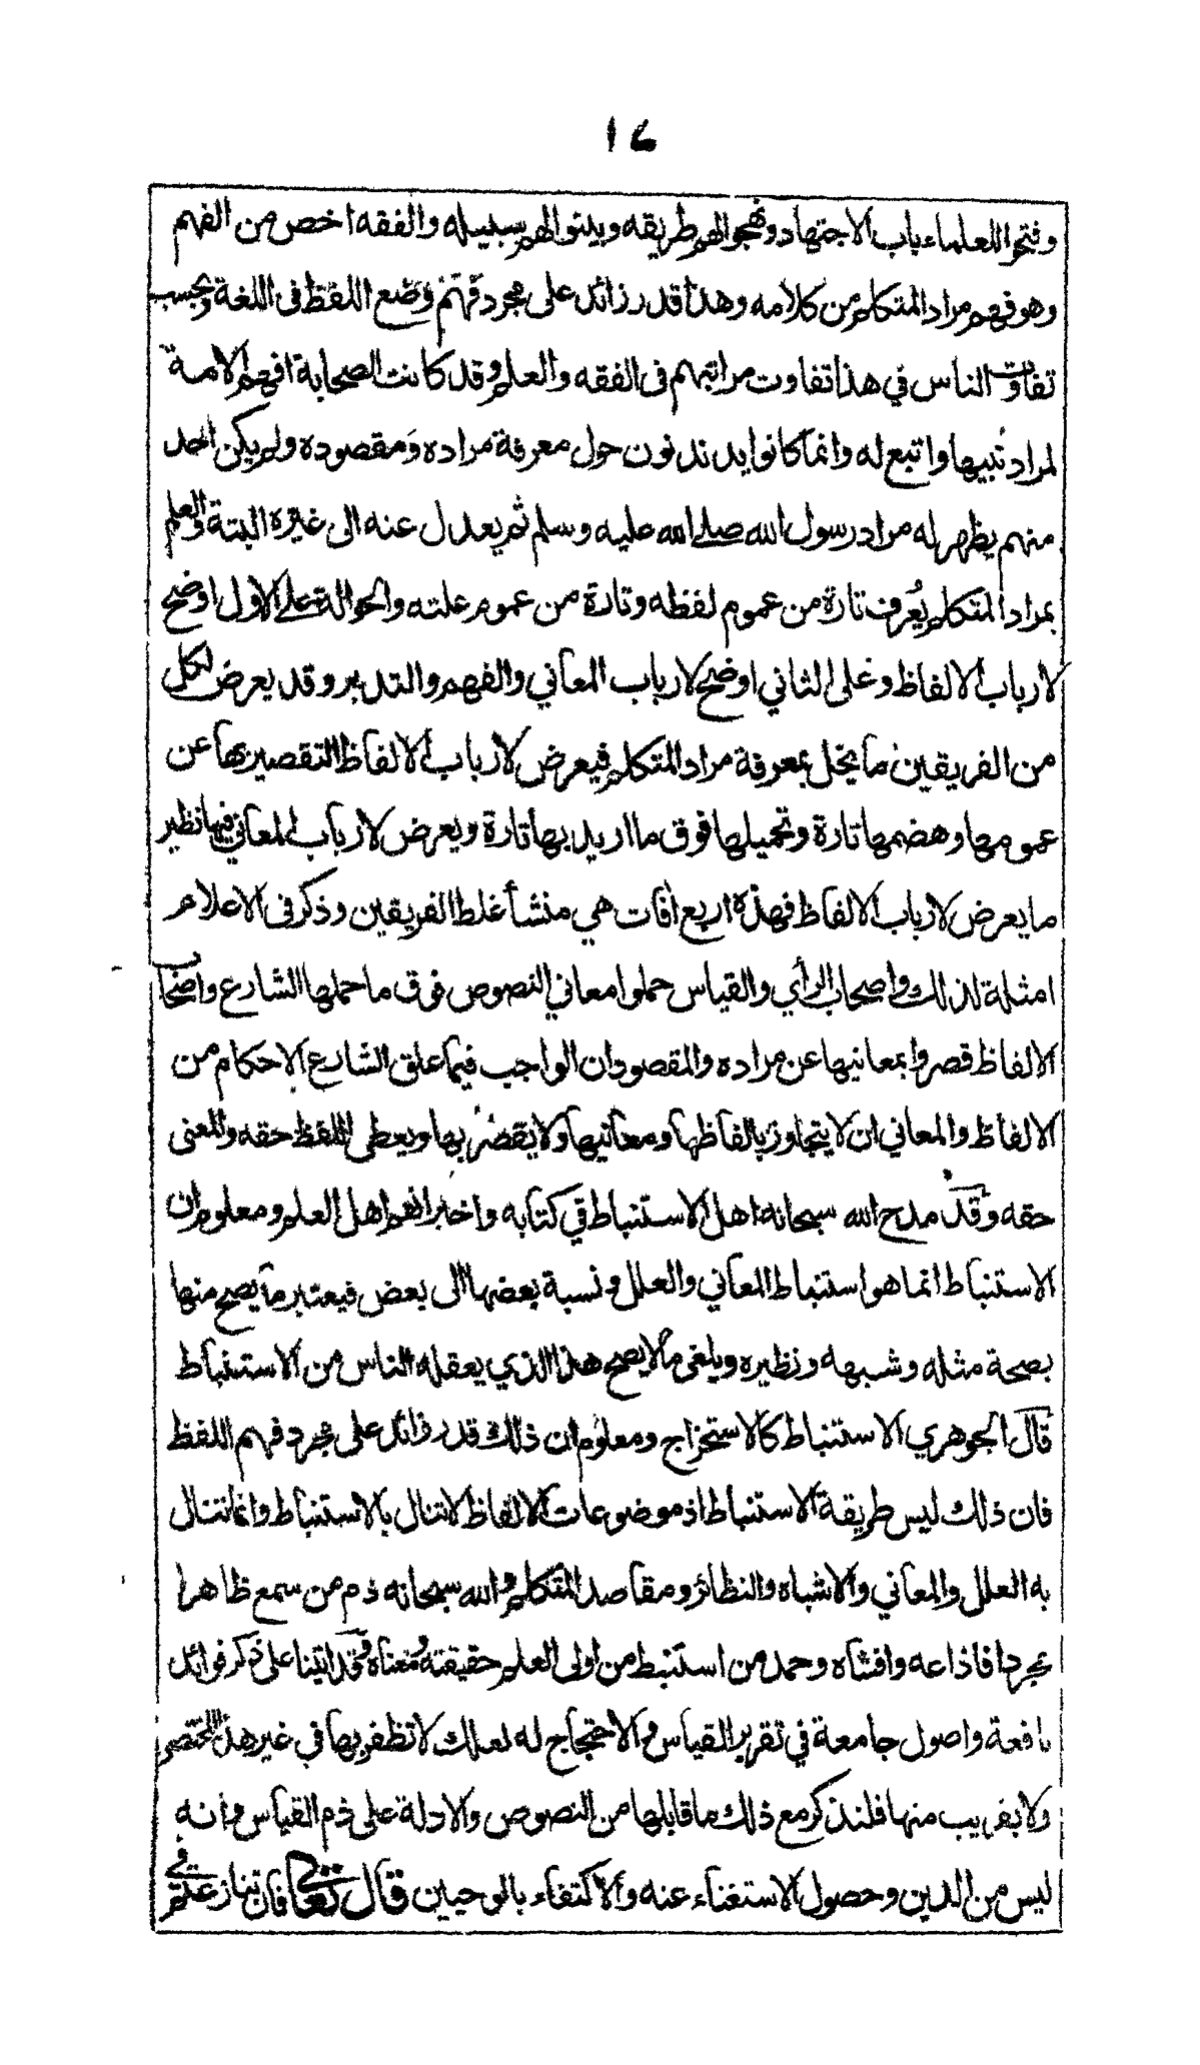 ١٤
وفتحوا للعلماء باب الاجتهاد ونهجوا لهم طريقه وبينوا لهم سبيله والفقه اخص من الفهم
وهو فهم مراد المتكلم من كلامه وهذا قدر زائد على مجرد فهم وضع اللفظ فى اللغة وبحسب
تفاوت الناس في هذا تفاوت مراتبهم فى الفقه والعلم وقد كانت الصحابة افهم الامة
لمراد نبيها واتبع له وانما كانوا يدندنون حول معرفة مراده ومقصوده ولم يكن احد
منهم يظهر له مراد رسول الله صلى الله عليه وسلم ثم يعدل عنه الى غيره البتة والعلم
بمراد المتكلم يُعرف تارة من عموم لفظه وتارة من عموم علته والحوالة على الاول اوضح
لارباب الالفاظ وعلى الثاني اوضح لارباب المعاني والفهم والتدبر وقد يعرض لكل
من الفريقين ما يخل بمعرفة مراد المتكلم فيعرض لارباب الالفاظ التقصير بها عن
عمومها وهضمها تارة وتحميلها فوق ما اريد بها تارة ويعرض لارباب المعاني فيها نظير
ما يعرض لارباب الالفاظ فهذه اربع افات هي منشأ غلط الفريقين وذكر فى الاعلام
امثلة لذلك واصحاب الرأي والقياس حملوا معاني النصوص فوق ما حملها الشارع واصحاب
الالفاظ قصروا بمعانيها عن مراده والمقصود ان الواجب فيما علق الشارع الاحكام من
الالفاظ والمعاني ان لا يتجاوز بالفاظها ومعانيها ولا يقصر بها ويعطى اللفظ حقه والمعنى
حقه وقد مدح الله سبحانه اهل الاستنباط في كتابه واخبر انهم اهل العلم ومعلوم ان
الاستنباط انما هو استنباط المعاني والعلل ونسبة بعضها الى بعض فيعتبر ما يصح منها
بصحة مثله وشبهه ونظيره ويلغى ما لا يصح هذا الذي يعقله الناس من الاستنباط
قال الجوهري الاستنباط كالاستخراج ومعلوم ان ذلك قدر زائد على مجرد فهم اللفظ
فان ذلك ليس طريقة الاستنباط اذ موضوعات الالفاظ لا تنال بالاستنباط وانما تنال
به العلل والمعاني والاشباه والنظائر ومقاصد المتكلم والله سبحانه ذم من سمع ظاهرا
مجردا فاذاعه وافشاه وحمد من استنبط من اولى العلم حقيقته ومعناه وقد اتينا على ذكر فوائد
نافعة واصول جامعة في تقرير القياس والاحتجاج له لعلك لا تظفر بها في غير هذا المختصر
ولا بقريب منها فلنذكر مع ذلك ما قابلها من النصوص والادلة على ذم القياس وانه
ليس من الدين وحصول الاستغناء عنه والاكتفاء بالوحيين قال تعالى فان تنازعتم في